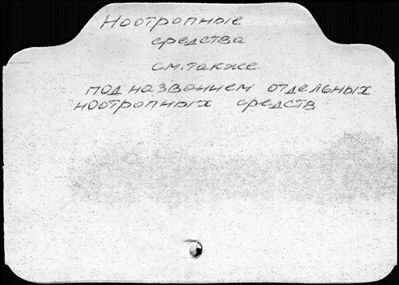 Ноотропные
средства
см. также
под названием отдельных
ноотропных средств